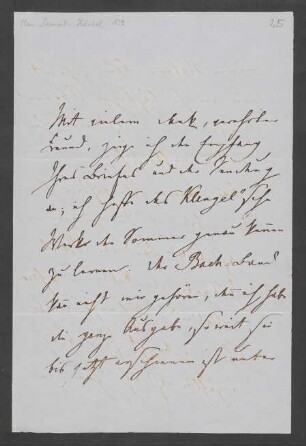 25
Mit vielem Dank, verehrter
Freund, zeige ich den Empfang
Ihres Briefes und der Sendung
an; ich hoffe das Klengel'sche
Werk den Sommer genau kennen
zu lernen. Der Bach-Band
kann nicht mir gehören, denn ich habe
die ganze Ausgabe, soweit sie
bis jetzt erschienen ist unter